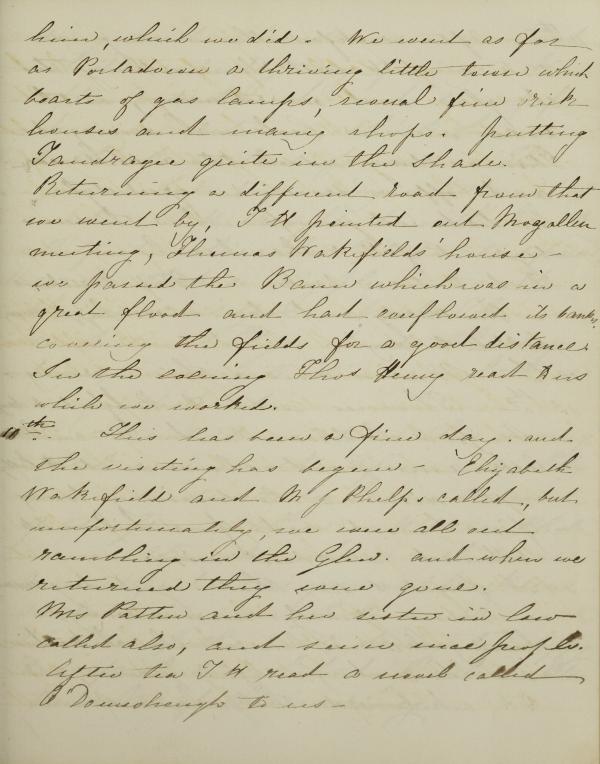 him, which we did. We went as far
as Portadown a thriving little town which
boasts of gas lamps, several fine brick
houses and many shops. putting
Tandragee quite in the shade.
Returning a different road from that
we went by, T H pointed out Moyallen
meeting, Thomas Wakefields' house -
we passed the Bann which was in a
great flood and had overflowed its banks,
covering the fields for a good distance.
In the evening Thos Henry read to us
which we worked.
10th. This has been a fine day. and
the visiting has begun - Elizabeth
Wakefield and M J Phelps called, but
unfortunately, we were all out
rambling in the Glen. and when we
returned they were gone.
Mrs Patten and her sister in law
called also, and seem nice people.
After tea T H read a novel called
to us -